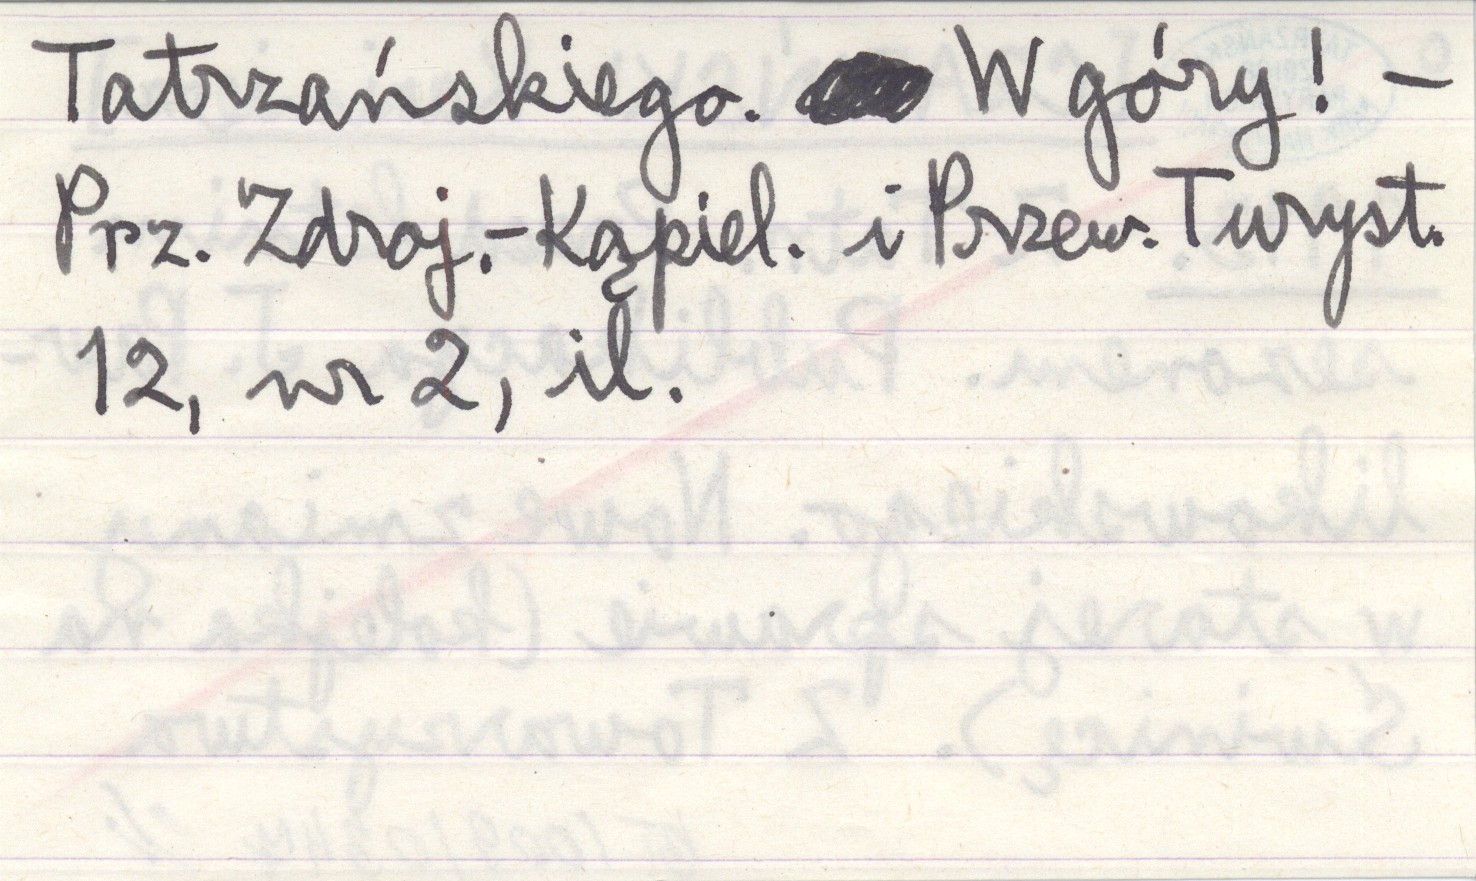 Tatrzańskiego. W góry! -
Prz. Zdroj.-Kąpiel. i Przew. Turyst.
12, nr 2, il.